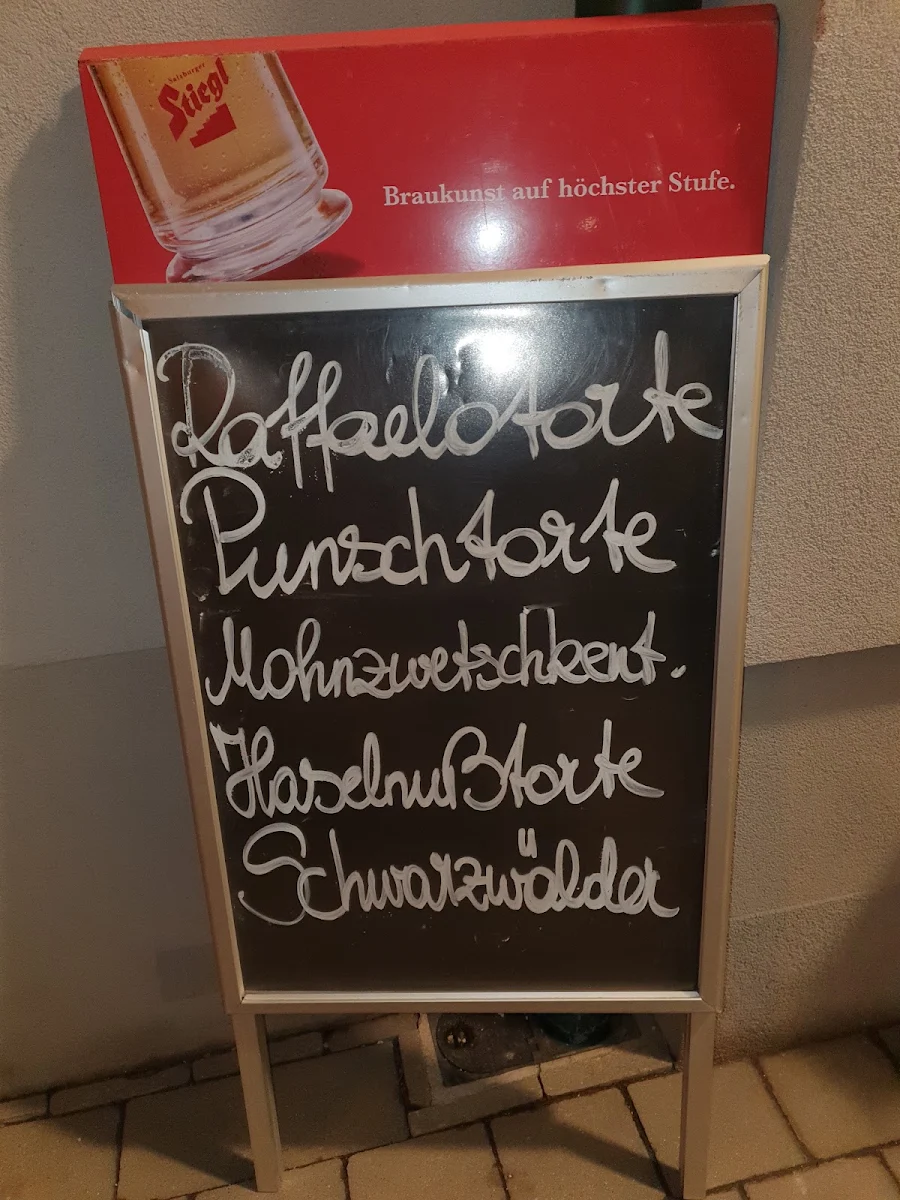 Salzburger
Stiegl
Braukunst auf höchster Stufe.
Raffaelotorte
Punschtorte
Mohnzwetschkent.
Haselnußtorte
Schwarzwälder